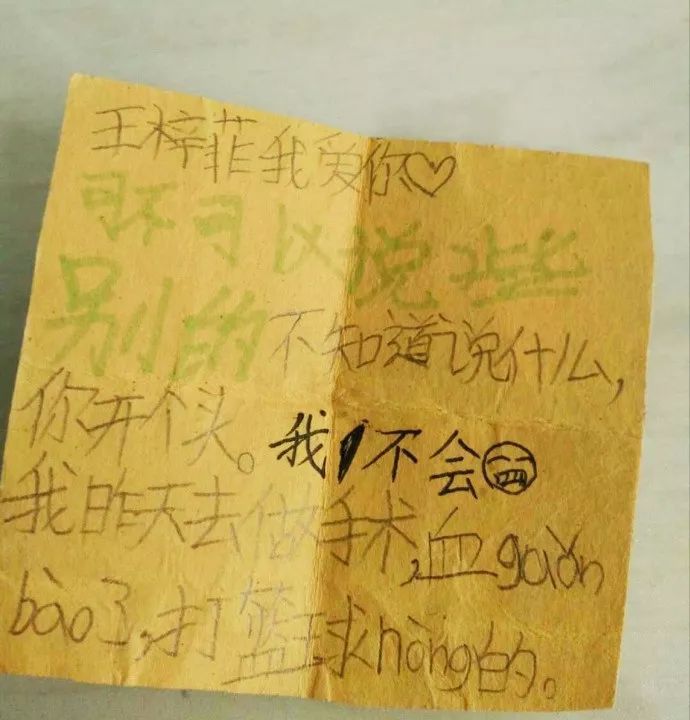 王梓菲我爱你♡
可不可以说些
别的不知道说什么,
你开个头。我不会
我昨天去做手术,血guǎn
bào了,打篮球nòng的。